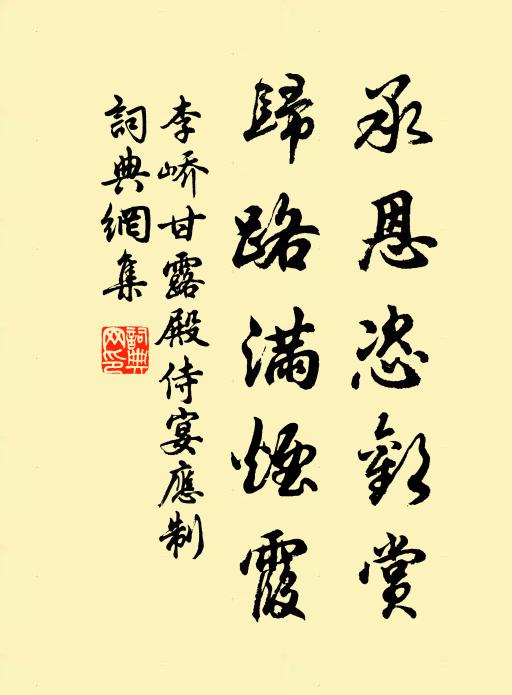 承恩恣歡賞
歸路滿煙霞
李嶠甘露殿侍宴應制
詞典網集
詞典
网印